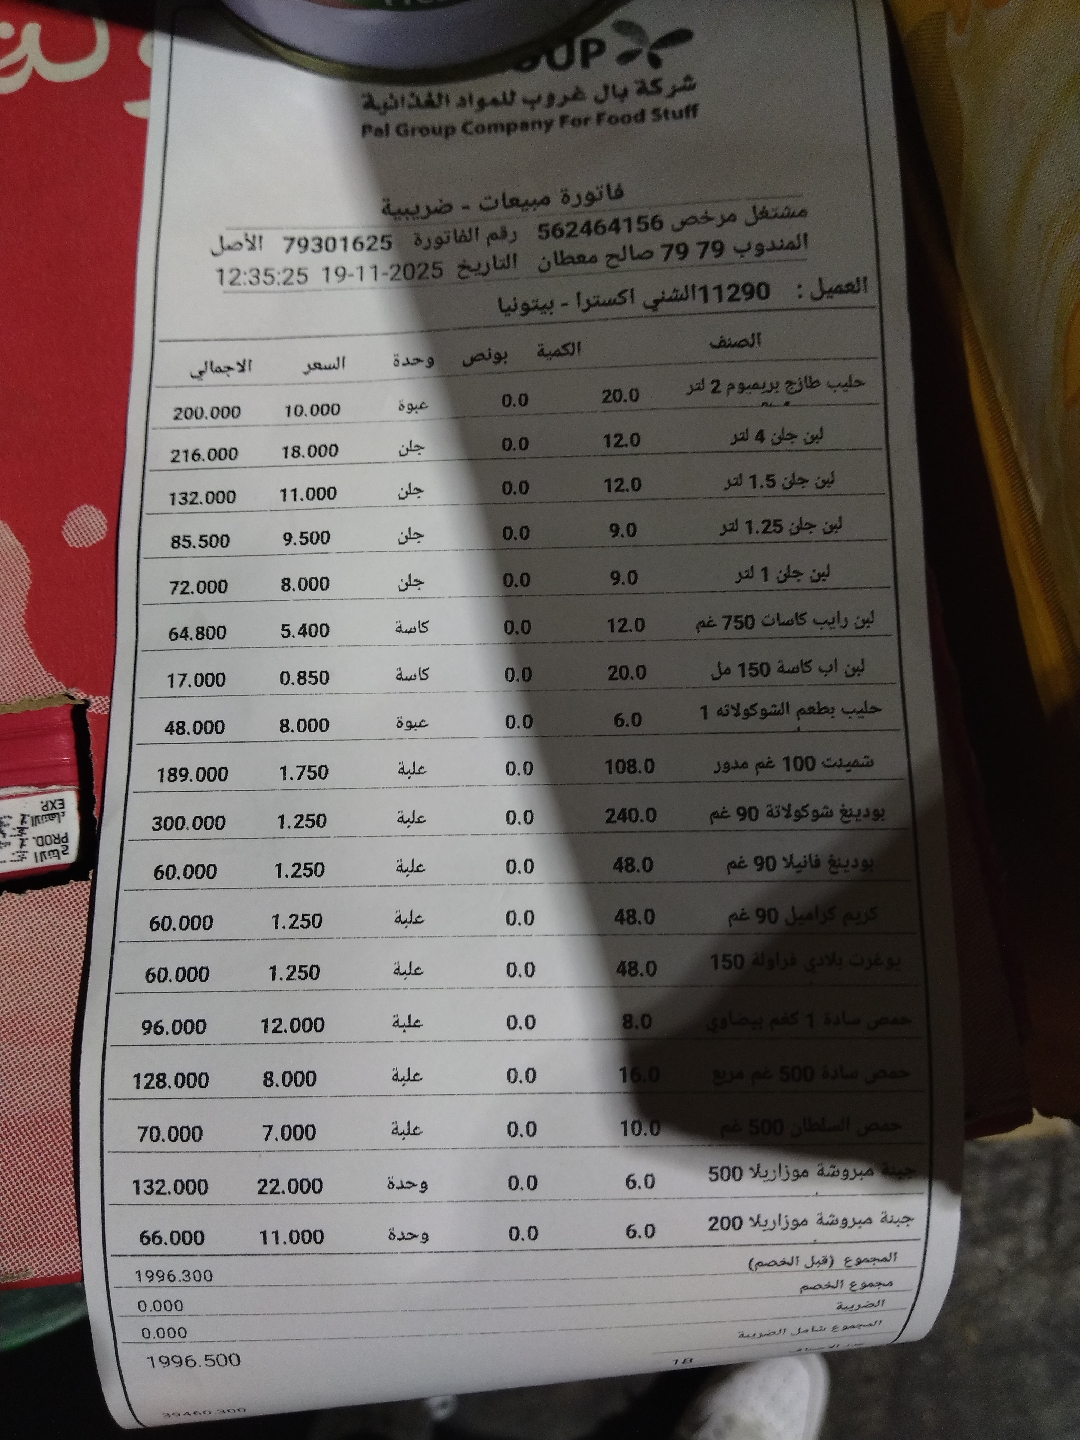 شركة بال غروب للمواد الغذائية
Pal Group Company For Food Stuff
فاتورة مبيعات - ضريبية
مشتغل مرخص 562464156 رقم الفاتورة 79301625 الأصل
المندوب 79 79 صالح معطان التاريخ 19-11-2025 12:35:25
العميل : 11290الشني اكسترا - بيتونيا
الصنف الكمية بونص وحدة السعر الاجمالي
حليب طازج بريميوم 2 لتر 20.0 0.0 عبوة 10.000 200.000
لبن جلن 4 لتر 12.0 0.0 جلن 18.000 216.000
لبن جلن 1.5 لتر 12.0 0.0 جلن 11.000 132.000
لبن جلن 1.25 لتر 9.0 0.0 جلن 9.500 85.500
لبن جلن 1 لتر 9.0 0.0 جلن 8.000 72.000
لبن رايب كاسات 750 غم 12.0 0.0 كاسة 5.400 64.800
لبن اب كاسة 150 مل 20.0 0.0 كاسة 0.850 17.000
حليب بطعم الشوكولاته 1 6.0 0.0 عبوة 8.000 48.000
شمينت 100 غم مدور 108.0 0.0 علبة 1.750 189.000
بودينغ شوكولاتة 90 غم 240.0 0.0 علبة 1.250 300.000
بودينغ فانيلا 90 غم 48.0 0.0 علبة 1.250 60.000
كريم كراميل 90 غم 48.0 0.0 علبة 1.250 60.000
يوغرت بلادي فراولة 150 48.0 0.0 علبة 1.250 60.000
حمص سادة 1 كغم بيضاوي 8.0 0.0 علبة 12.000 96.000
حمص سادة 500 غم مربع 16.0 0.0 علبة 8.000 128.000
حمص السلطان 500 غم 10.0 0.0 علبة 7.000 70.000
جبنة مبروشة موزاريلا 500 6.0 0.0 وحدة 22.000 132.000
جبنة مبروشة موزاريلا 200 6.0 0.0 وحدة 11.000 66.000
المجموع (قبل الخصم) 1996.300
مجموع الخصم 0.000
الضريبة 0.000
المجموع شامل الضريبة 1996.500
18
39460.300
EXP.
PROD.